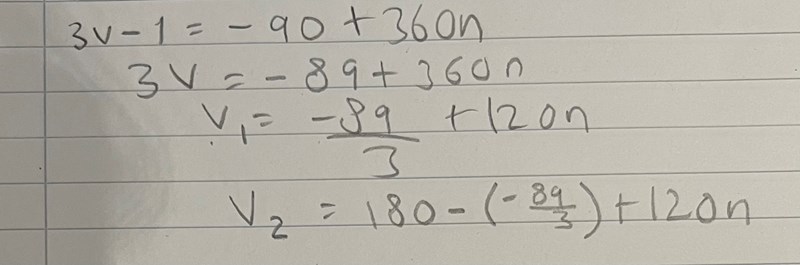 3v - 1 = - 90 + 360n
3v = - 89 + 360n
v₁ = -89/3 + 120n
v₂ = 180 - (-89/3) + 120n